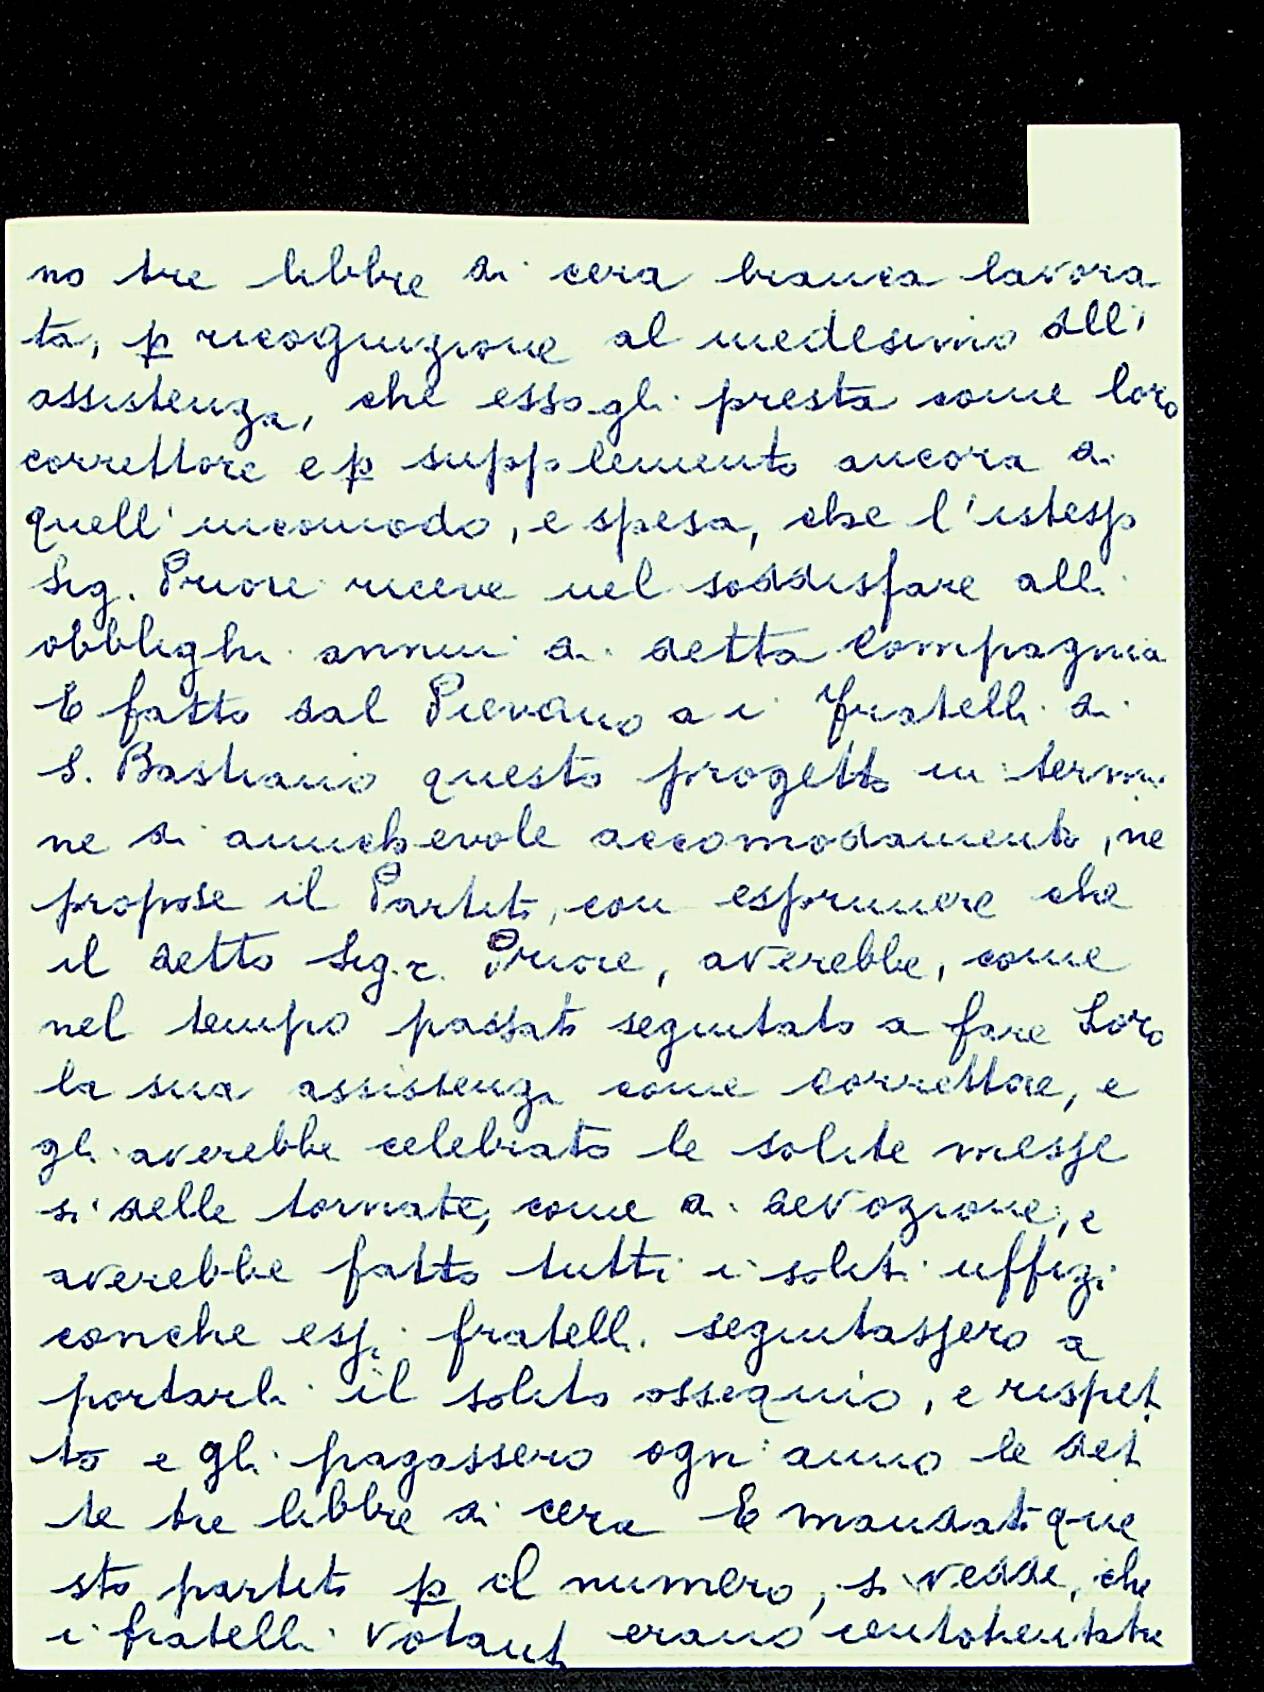 no tre libbre di cera bianca lavora
ta, p ricogniizione al medesimo dll'
assistenza, che esso gli presta come loro
correttore e p supplemento ancora di
quell'incomodo, e spesa, che l'istesso
Sig. Priore riceve nel soddisfare alli
obblighi annui di detta Compagnia
E fatto dal Pievano a i Fratelli di
S. Bastiano questo progetto in termi
ne di amichevole accomodamento, ne
propose il Partito, con esprimere che
il detto Sig.r. Priore, averebbe, come
nel tempo passato seguitato a fare Loro
la sua assistenza come correttore, e
gli averebbe celebrato le solite messe
sì delle tornate, come di devozione, e
averebbe fatto tutti i soliti uffizi
conche essi fratelli seguitassero a
portarli il solito ossequio, e rispet
to e gli pagassero ogni anno le det
te tre libbre di cera E mandato que
sto partito p il numero, si vedde, che
i fratelli votanti erano centotrentatre